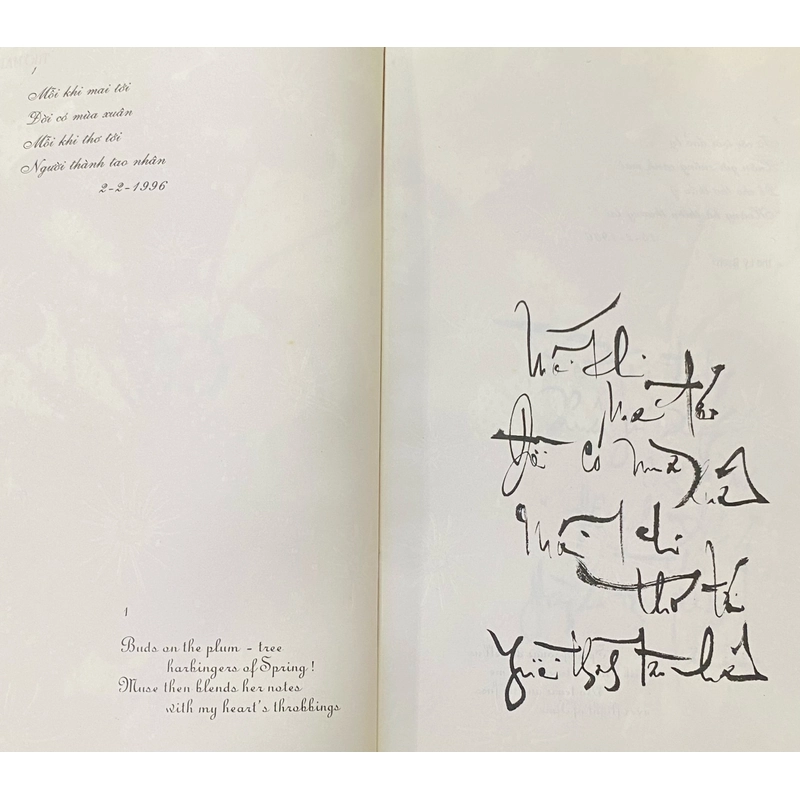 1
Mỗi khi mai tới
Đời có mùa xuân
Mỗi khi thơ tới
Người thành tao nhân
2-2-1996
1
Buds on the plum - tree
harbingers of Spring !
Muse then blends her notes
with my heart's throbbings
Mỗi khi
mai tới
Đời có mùa xuân
Mỗi khi
thơ tới
Người thành tao nhân